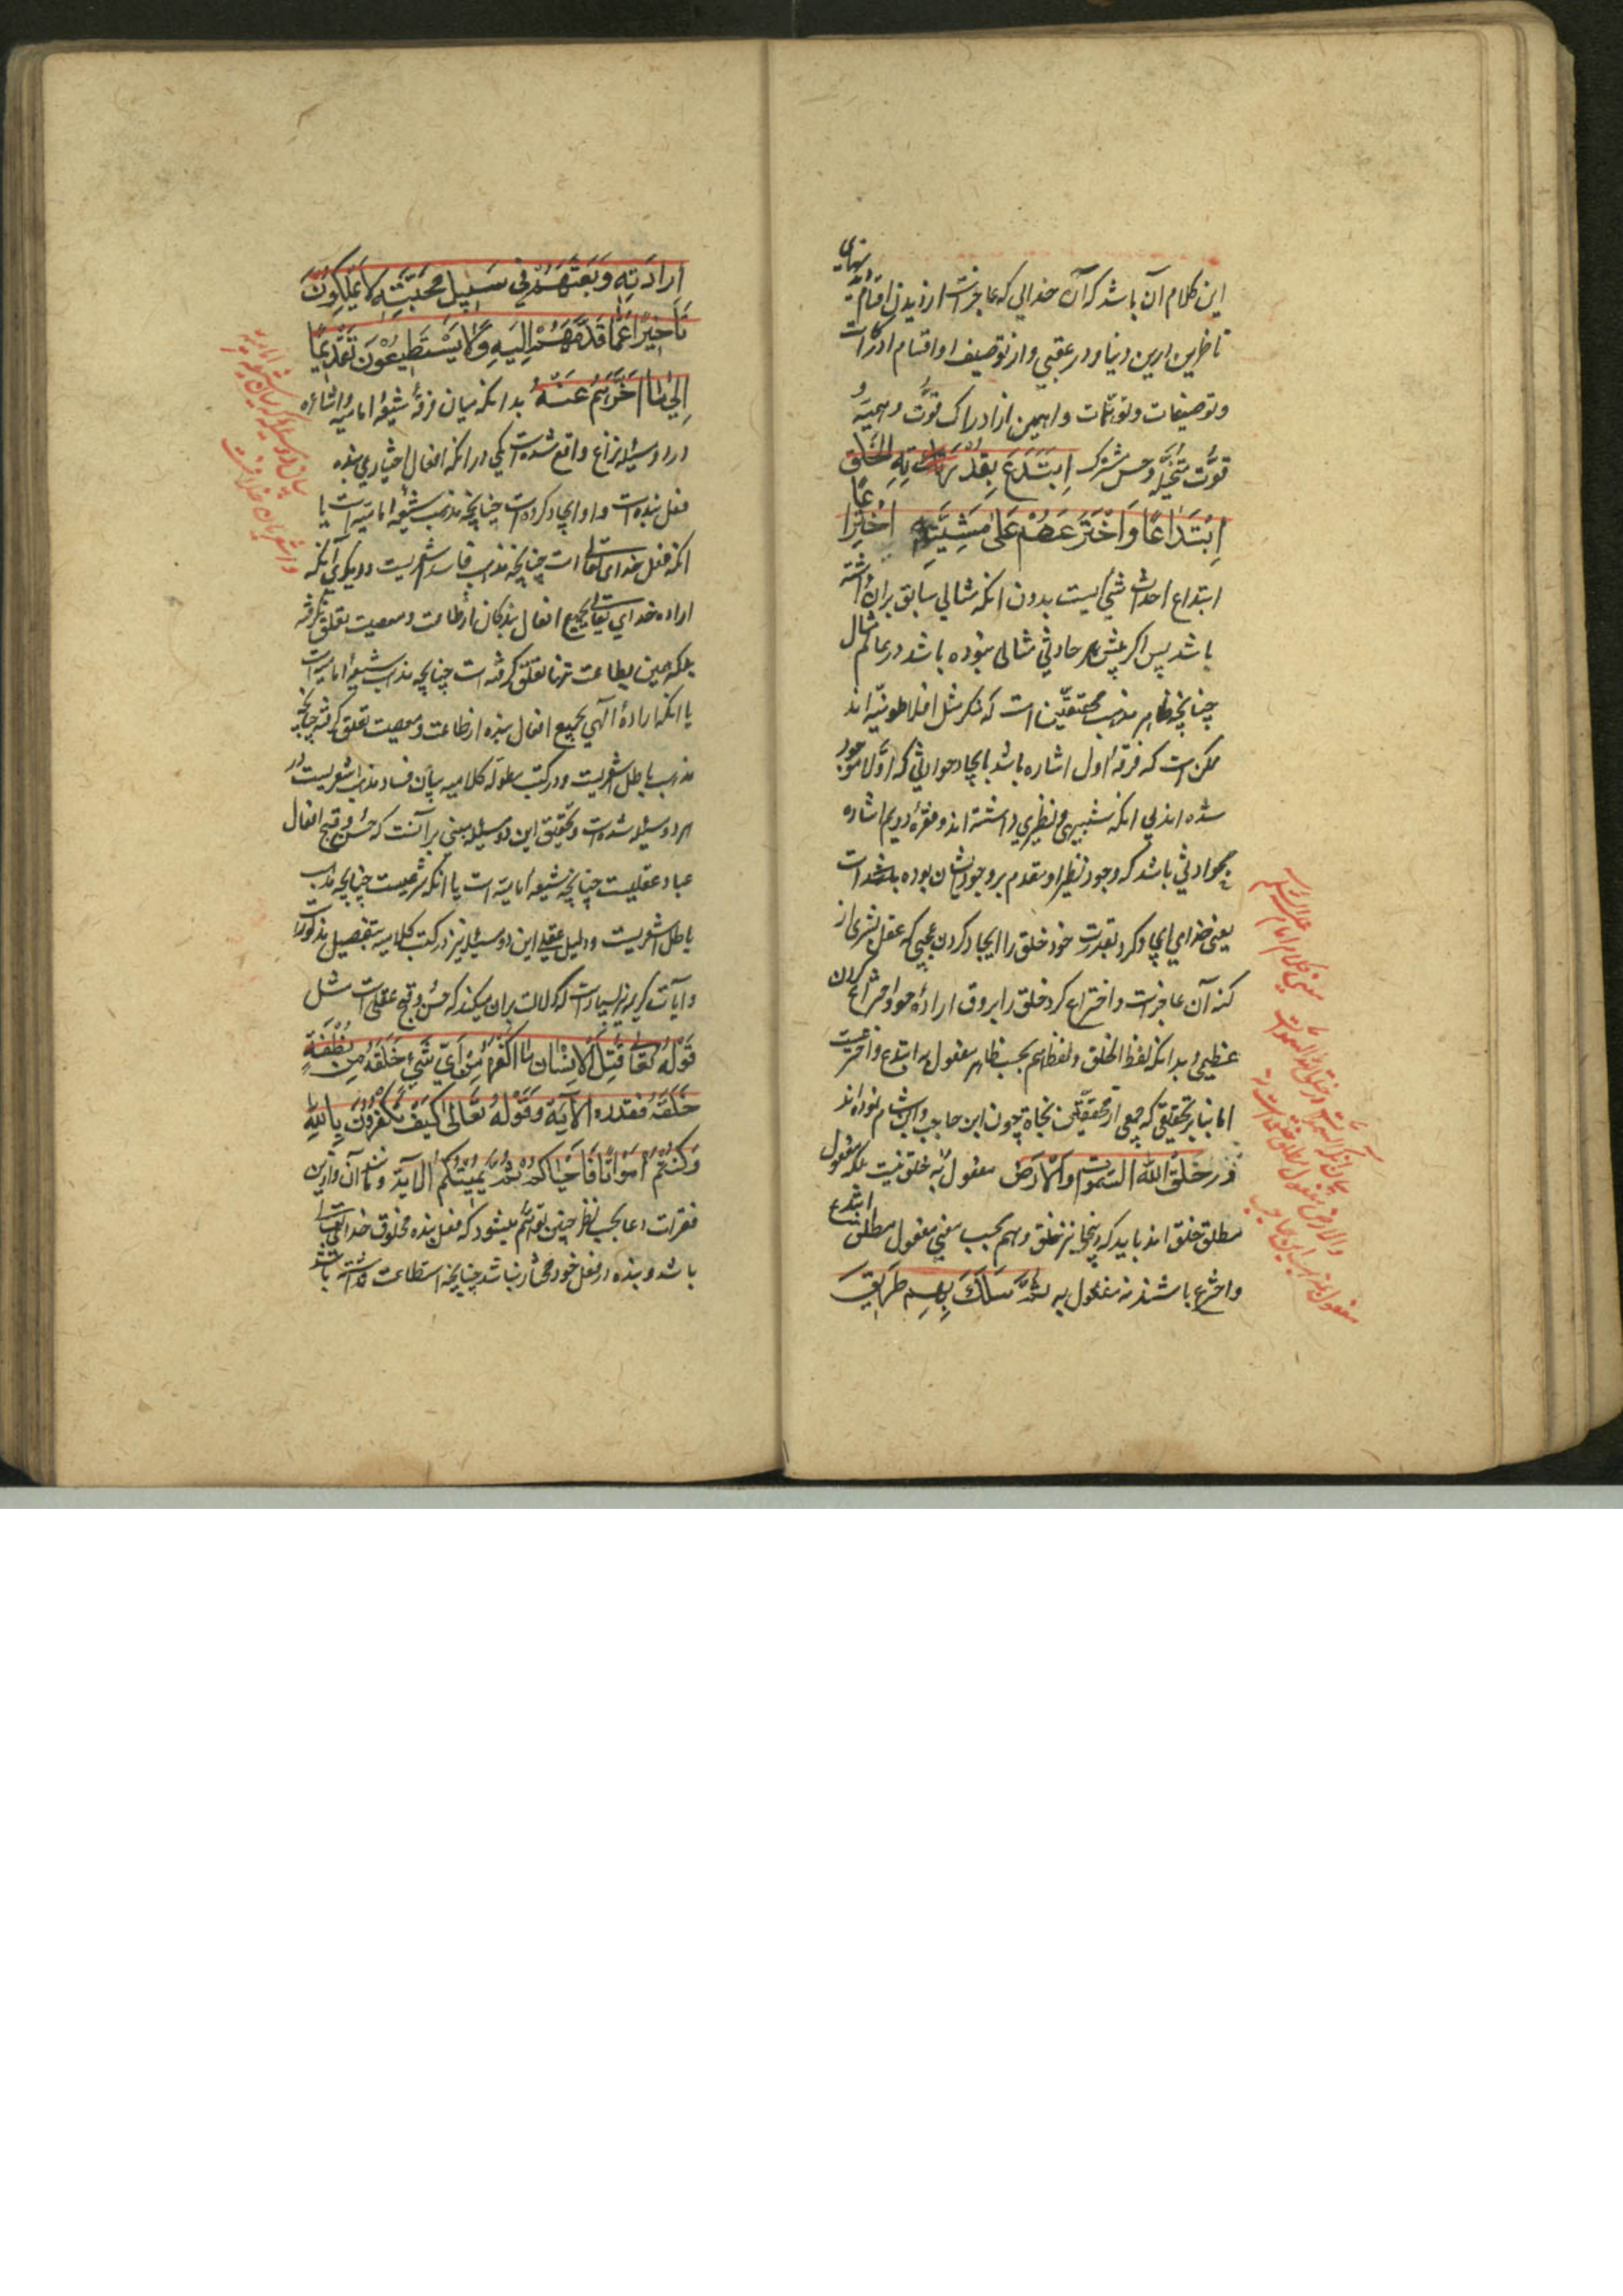 این کلام آن باشد که آن خدائی که عاجز است از دیدن اقسام دیدنهای
ناظرین این دنیا و در عقبی و از توصیف او اقسام ادراکات
و توصیفات و توهّمات واهمین از ادراک قوّت وهمیّه
قوّت متخیّله و حسّ مشترک اِبْتَدَعَ بِقُدْرَتِهِ الْخَلْقَ
اِبْتِدَاعًا وَاخْتَرَعَهُمْ عَلٰی مَشِیَّتِهِ اخْتِرَاعًا
ابتداع احداث شئ ایست بدون انکه مثالی سابق بران داشته
باشد پس اگر پیش هر حادثی مثالی نبوده باشد در عالم مثال
چنانچه ظاهر مذهب محققین است که ذکر مثل افلاطونیّه اند
ممکن است که فرقهٔ اول اشاره باشد بایجاد حوادثی که اوّلا موجود
شده اند بی انکه شبیهی و نظیری داشته اند و فقرهٔ دویم اشاره
بحوادثی باشد که وجود نظیر او مقدم بر وجود ایشان بوده باشد است
یعنی خدای ایجاد کرد بقدرت خود خلق را ایجاد کردن عجیبی که عقل بشری از
کنه آن عاجز است و اختراع کرد خلق را بر وفق ارادهٔ خود اختراع کردن
عظیمی و بدانکه لفظ الخلق و لفظ هم بحسب ظاهر مفعول به ابتدع و اخترعست
اما بنابر تحقیقی که جمعی از محققین نحاة چون ابن حاجب و ابن هشام نموده اند
در خَلَقَ اللهُ السَّمٰواتِ وَالْاَرْضَ مفعول به خلق نیست بلکه مفعول
مطلق خلق اند باید که اینجا نیز خلق و هم بحسب معنی مفعول مطلق ابتدع
و اخترع باشند نه مفعول به ثُمَّ سَلَكَ بِهِمْ طَرِیقَ
اِرَادَتِهِ وَبَعَثَهُمْ فِی سَبِیلِ مَحَبَّتِهِ لَا یَمْلِکُونَ
تَأْخِیرًا عَمَّا قَدَّمَهُمْ اِلَیْهِ وَلَا یَسْتَطِیعُونَ تَقْدِیمًا
اِلٰی مَا اَخَّرَهُمْ عَنْهُ بدانکه میان فرقهٔ شیعهٔ امامیه و اشاعره
در دو مسئله نزاع واقع شده است یکی در انکه افعال اختیاری بنده
فعل بنده است و او ایجاد کرده است چنانچه مذهب شیعهٔ امامیه است یا
انکه فعل خدای تعالی است چنانچه مذهب فاسد اشعریست و دیگری آنکه
ارادهٔ خدای تعالی بجمیع افعال بندگان از طاعت و معصیت تعلق نگرفته
بلکه همین بطاعت تنها تعلق گرفته است چنانچه مذهب شیعهٔ امامیه است
یا انکه ارادهٔ الهی بجمیع افعال بنده از طاعت و معصیت تعلق گرفته چنانچه
مذهب باطل اشعریست و در کتب مطوّلهٔ کلامیه بیان فساد مذهب اشعریست در
هر دو مسئله شده است و تحقیق این دو مسئله مبنی بر آنست که حسن و قبح افعال
عباد عقلیست چنانچه شیعه امامیّه است یا انکه شرعیست چنانچه مذهب
باطل اشعریست و دلیل عقلی این دو مسئله نیز در کتب کلامیه بتفصیل مذکور است
و ایات کریمه نیز بسیار است که دلالت بران میکند که حسن و قبح عقلی است مثل
قَوْلُهُ تَعَالٰی قُتِلَ الْاِنْسَانُ مَا اَکْفَرَهُ مِنْ اَیِّ شَیْءٍ خَلَقَهُ مِنْ نُطْفَةٍ
خَلَقَهُ فَقَدَّرَهُ الْآیَة وَقَوْلُهُ تَعَالٰی کَیْفَ تَکْفُرُونَ بِاللهِ
وَکُنْتُمْ اَمْوَاتًا فَاَحْیَاکُمْ ثُمَّ یُمِیتُکُمْ الآیة و مانند آن و ازین
فقرات دعا بحسب ظاهر چنین توهّم میشود که فعل بنده مخلوق خدای تعالی
باشد و بنده در فعل خود مختار نباشد چنانچه استطاعت نداشته باشد